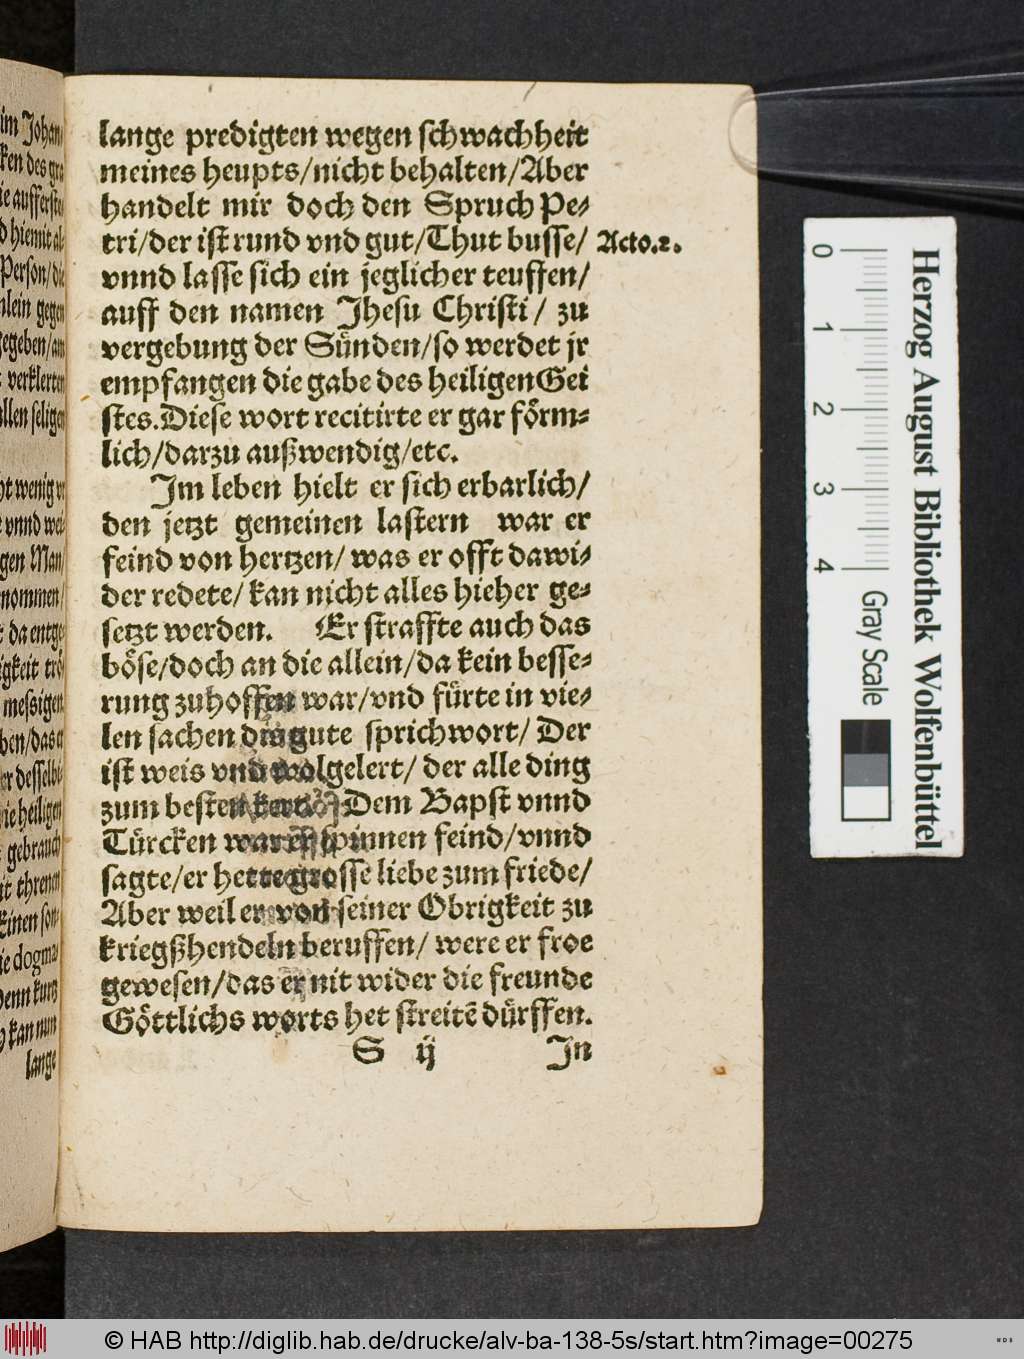 lange predigten wegen schwachheit
meines heupts/nicht behalten/Aber
handelt mir doch den Spruch Pe⸗
tri/der ist rund vnd gut/Thut busse/ Acto.2.
vnnd lasse sich ein jeglicher teuffen/
auff den namen Jhesu Christi/ zu
vergebung der Sünden/so werdet jr
empfangen die gabe des heiligen Gei
stes. Diese wort recitirte er gar förm⸗
lich/darzu außwendig/etc.
Jm leben hielt er sich erbarlich/
den jetzt gemeinen lastern war er
feind von hertzen/ was er offt dawi⸗
der redete/ kan nicht alles hieher ge⸗
setzt werden. Er straffte auch das
böse/doch an die allein/da kein besse⸗
rung zuhoffen war/vnd fürte in vie⸗
len sachen dis gute sprichwort/ Der
ist weis vnd wolgelert/ der alle ding
zum besten kert. Dem Bapst vnnd
Türcken war er spinnen feind/vnnd
sagte/er hette grosse liebe zum friede/
Aber weil er von seiner Obrigkeit zu
kriegßhendeln beruffen/ were er froe
gewesen/das er nit wider die freunde
Göttlichs worts het streitē dürffen.
S ij Jn
im Johan
ie aufferste
d hiemit al⸗
Person/die
gegeben/am
verklerten
allen seligen
ht wenig
vnnd wei
gen Man/
nommen/
messigen
er desselbi
ie heiligen
gebrauch
it threnen
Einen son⸗
denn kurtz
kan nun
lange
Herzog August Bibliothek Wolfenbüttel
0 1 2 3 4
Gray Scale
© HAB http://diglib.hab.de/drucke/alv-ba-138-5s/start.htm?image=00275